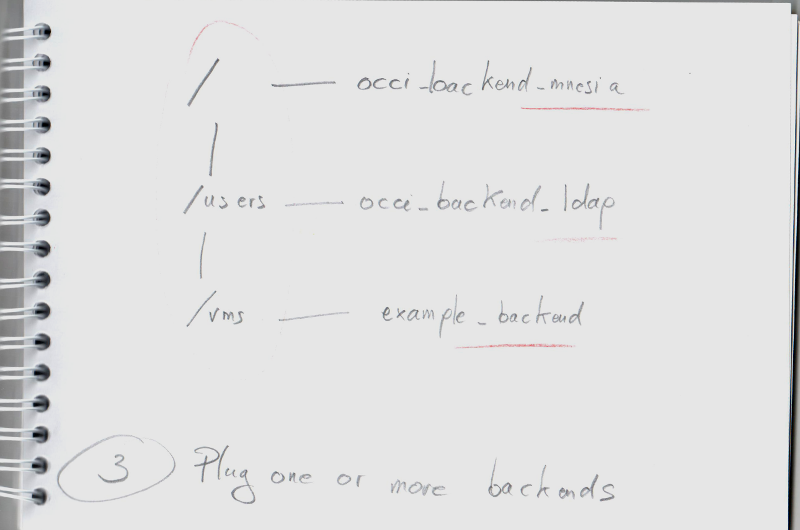 / — occi_backend_mnesia
/users — occi_backend_ldap
/vms — example_backend
3 Plug one or more backends